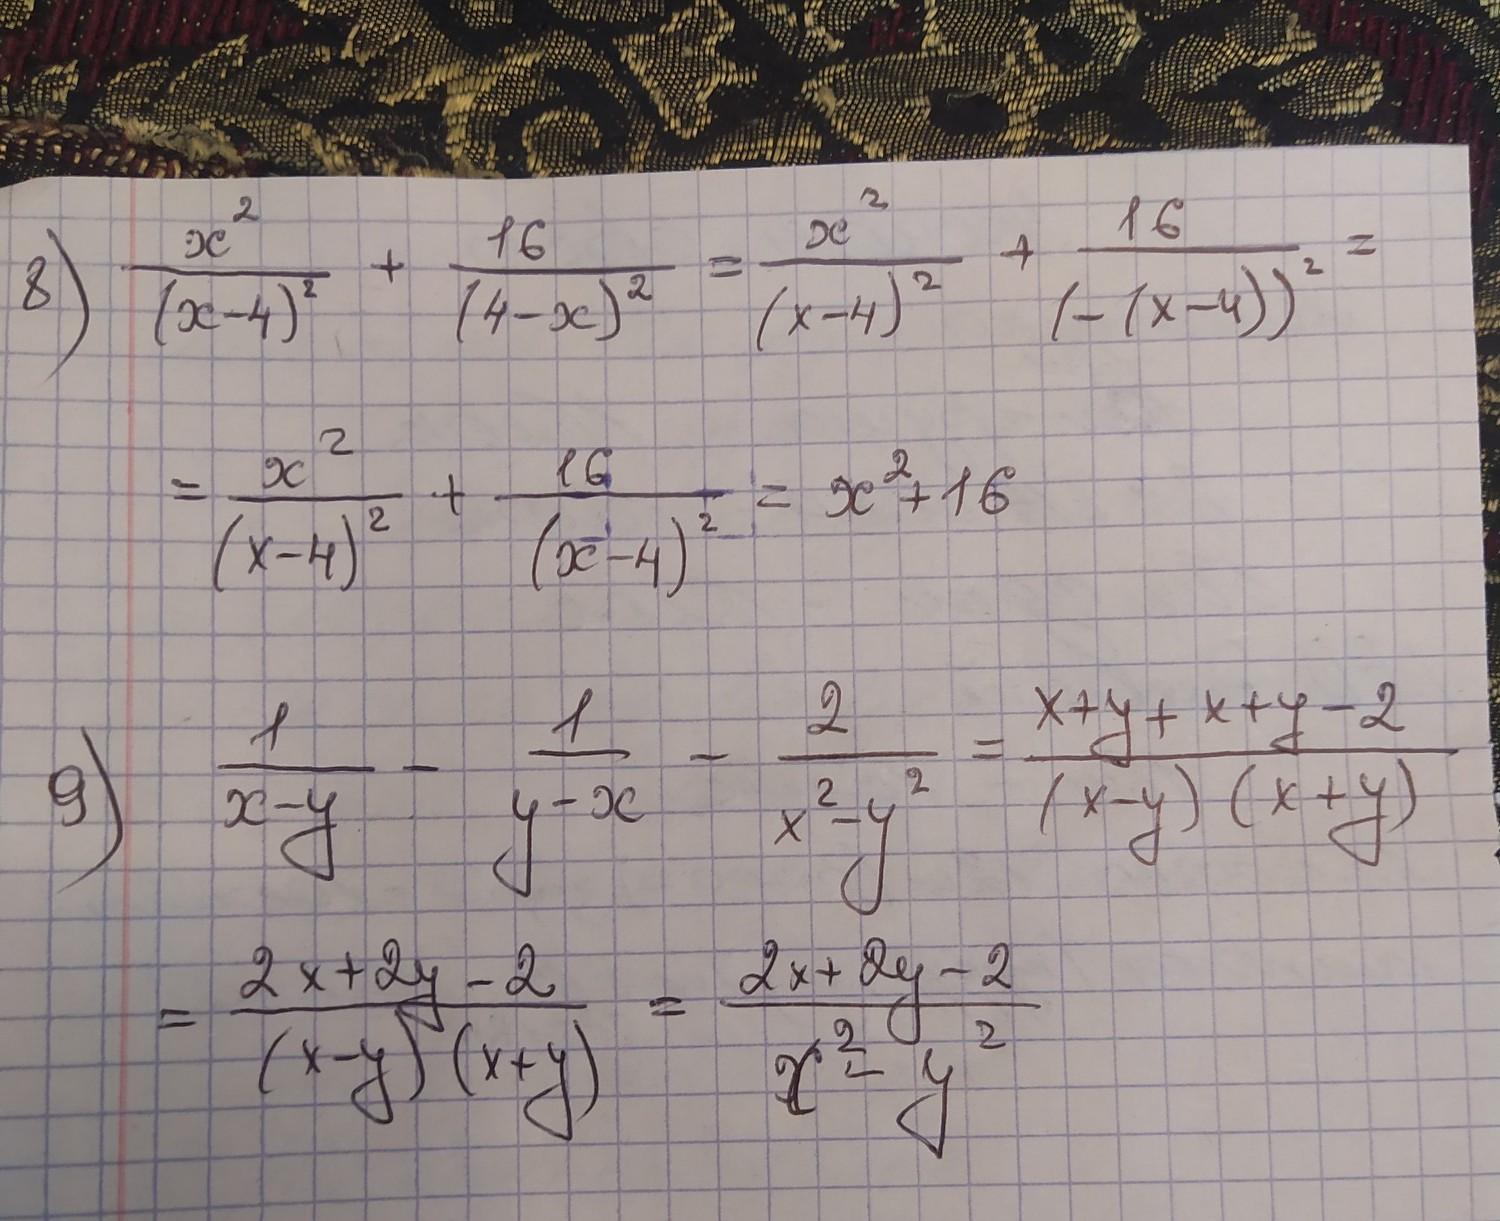 8) x²/(x-4)² + 16/(4-x)² = x²/(x-4)² + 16/(-(x-4))² =
= x²/(x-4)² + 16/(x-4)² = x²+16
9) 1/(x-y) - 1/(y-x) - 2/(x²-y²) = (x+y+x+y-2)/((x-y)(x+y))
= (2x+2y-2)/((x-y)(x+y)) = (2x+2y-2)/(x²-y²)